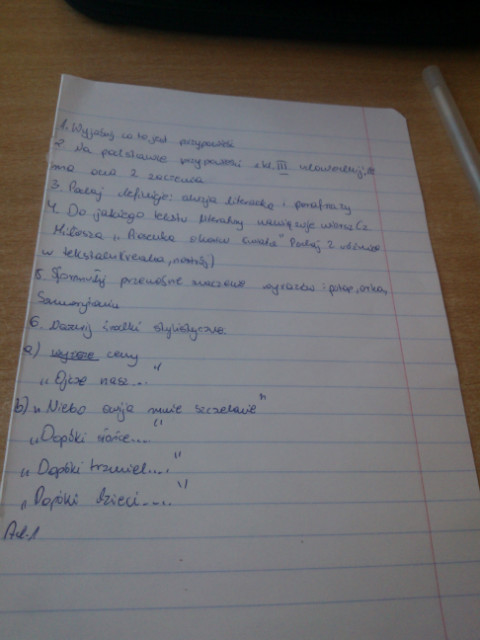 1. Wyjaśnij co to jest przypowieść
2. Na podstawie przypowieści z kl. III udowodnij, że
ma ona 2 znaczenia
3. Podaj definicję: aluzja literacka i parafrazy
4. Do jakiego tekstu literackiego nawiązuje wiersz Cz
Miłosza „Piosenka o końcu świata" Podaj 2 różnice
w tekstach (kreacja, nastrój)
5. Sformułuj przenośne znaczenie wyrazów: potop, arka,
Samarytanin
6. Nazwij środki stylistyczne.
a) ceny
„Ojcze nasz..."
b) „Niebo owija mnie szczelnie"
„Dopóki słońce...."
„Dopóki trzmiel...."
„Dopóki dzieci....."
Ad.1